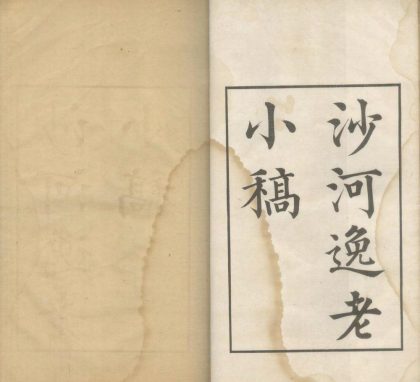 沙河逸老
小稿